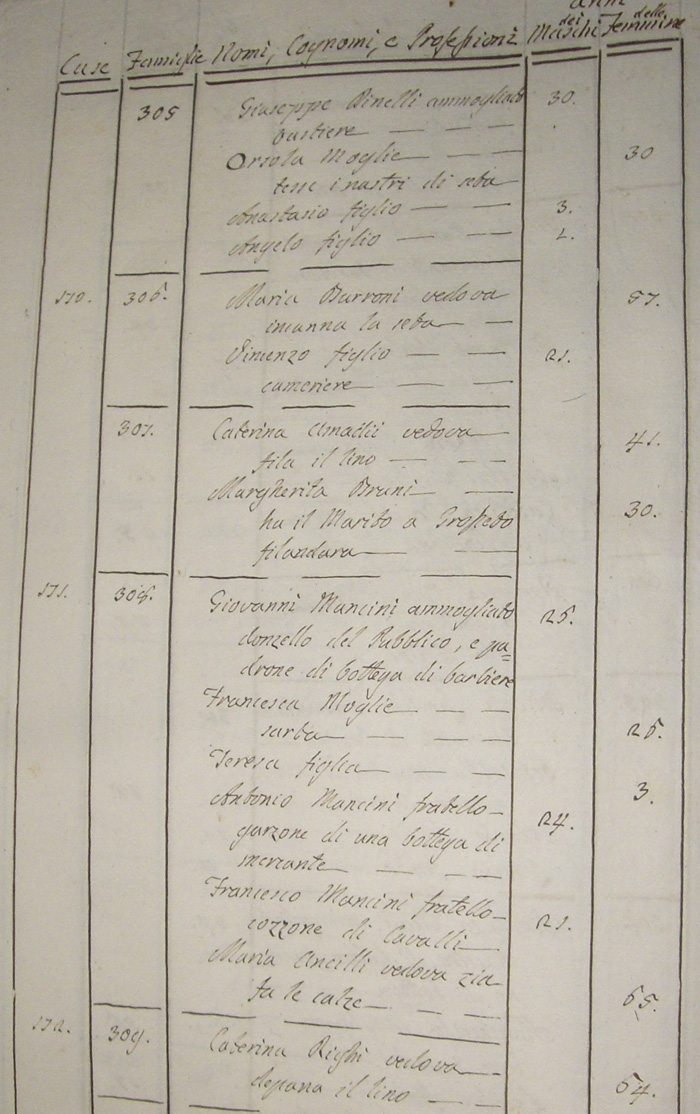 Anni
Case Famiglie Nomi, Cognomi, e Professioni dei Maschi delle Femmine
305 Giuseppe Binelli ammogliato 30.
bustiere
Orsola Moglie 30
tesse i nastri di seta
Anastasio figlio 3.
Angelo figlio 1.
170. 306. Maria Barroni vedova 57.
incanna la seta
Vincenzo figlio 21.
cameriere
307. Caterina Amadii vedova 41.
fila il lino
Margherita Bruni 30.
ha il Marito a
filandara
171. 308. Giovanni Mancini ammogliato 25.
donzello del Pubblico, e pa=
drone di bottega di barbiere
Francesca Moglie
sarta 25.
Teresa figlia 3.
Antonio Mancini fratello 24.
garzone di una bottega di
mercante
Francesco Mancini fratello 21.
cozzone di Cavalli
Maria Ancilli vedova zia
fa le calze 65.
172. 309. Caterina Righi vedova
depana il lino 54.